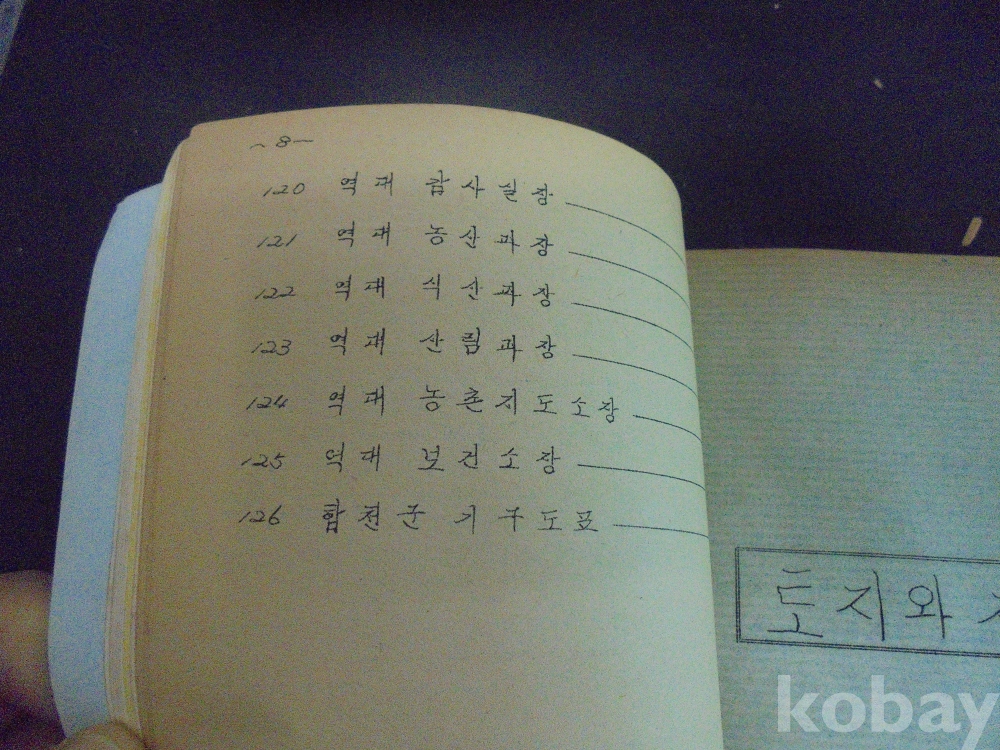 ~8—
120 역대 감사실장
121 역대 농산과장
122 역대 식산과장
123 역대 산림과장
124 역대 농촌지도소장
125 역대 보건소장
126 합천군 기구도표
토지와
kobay